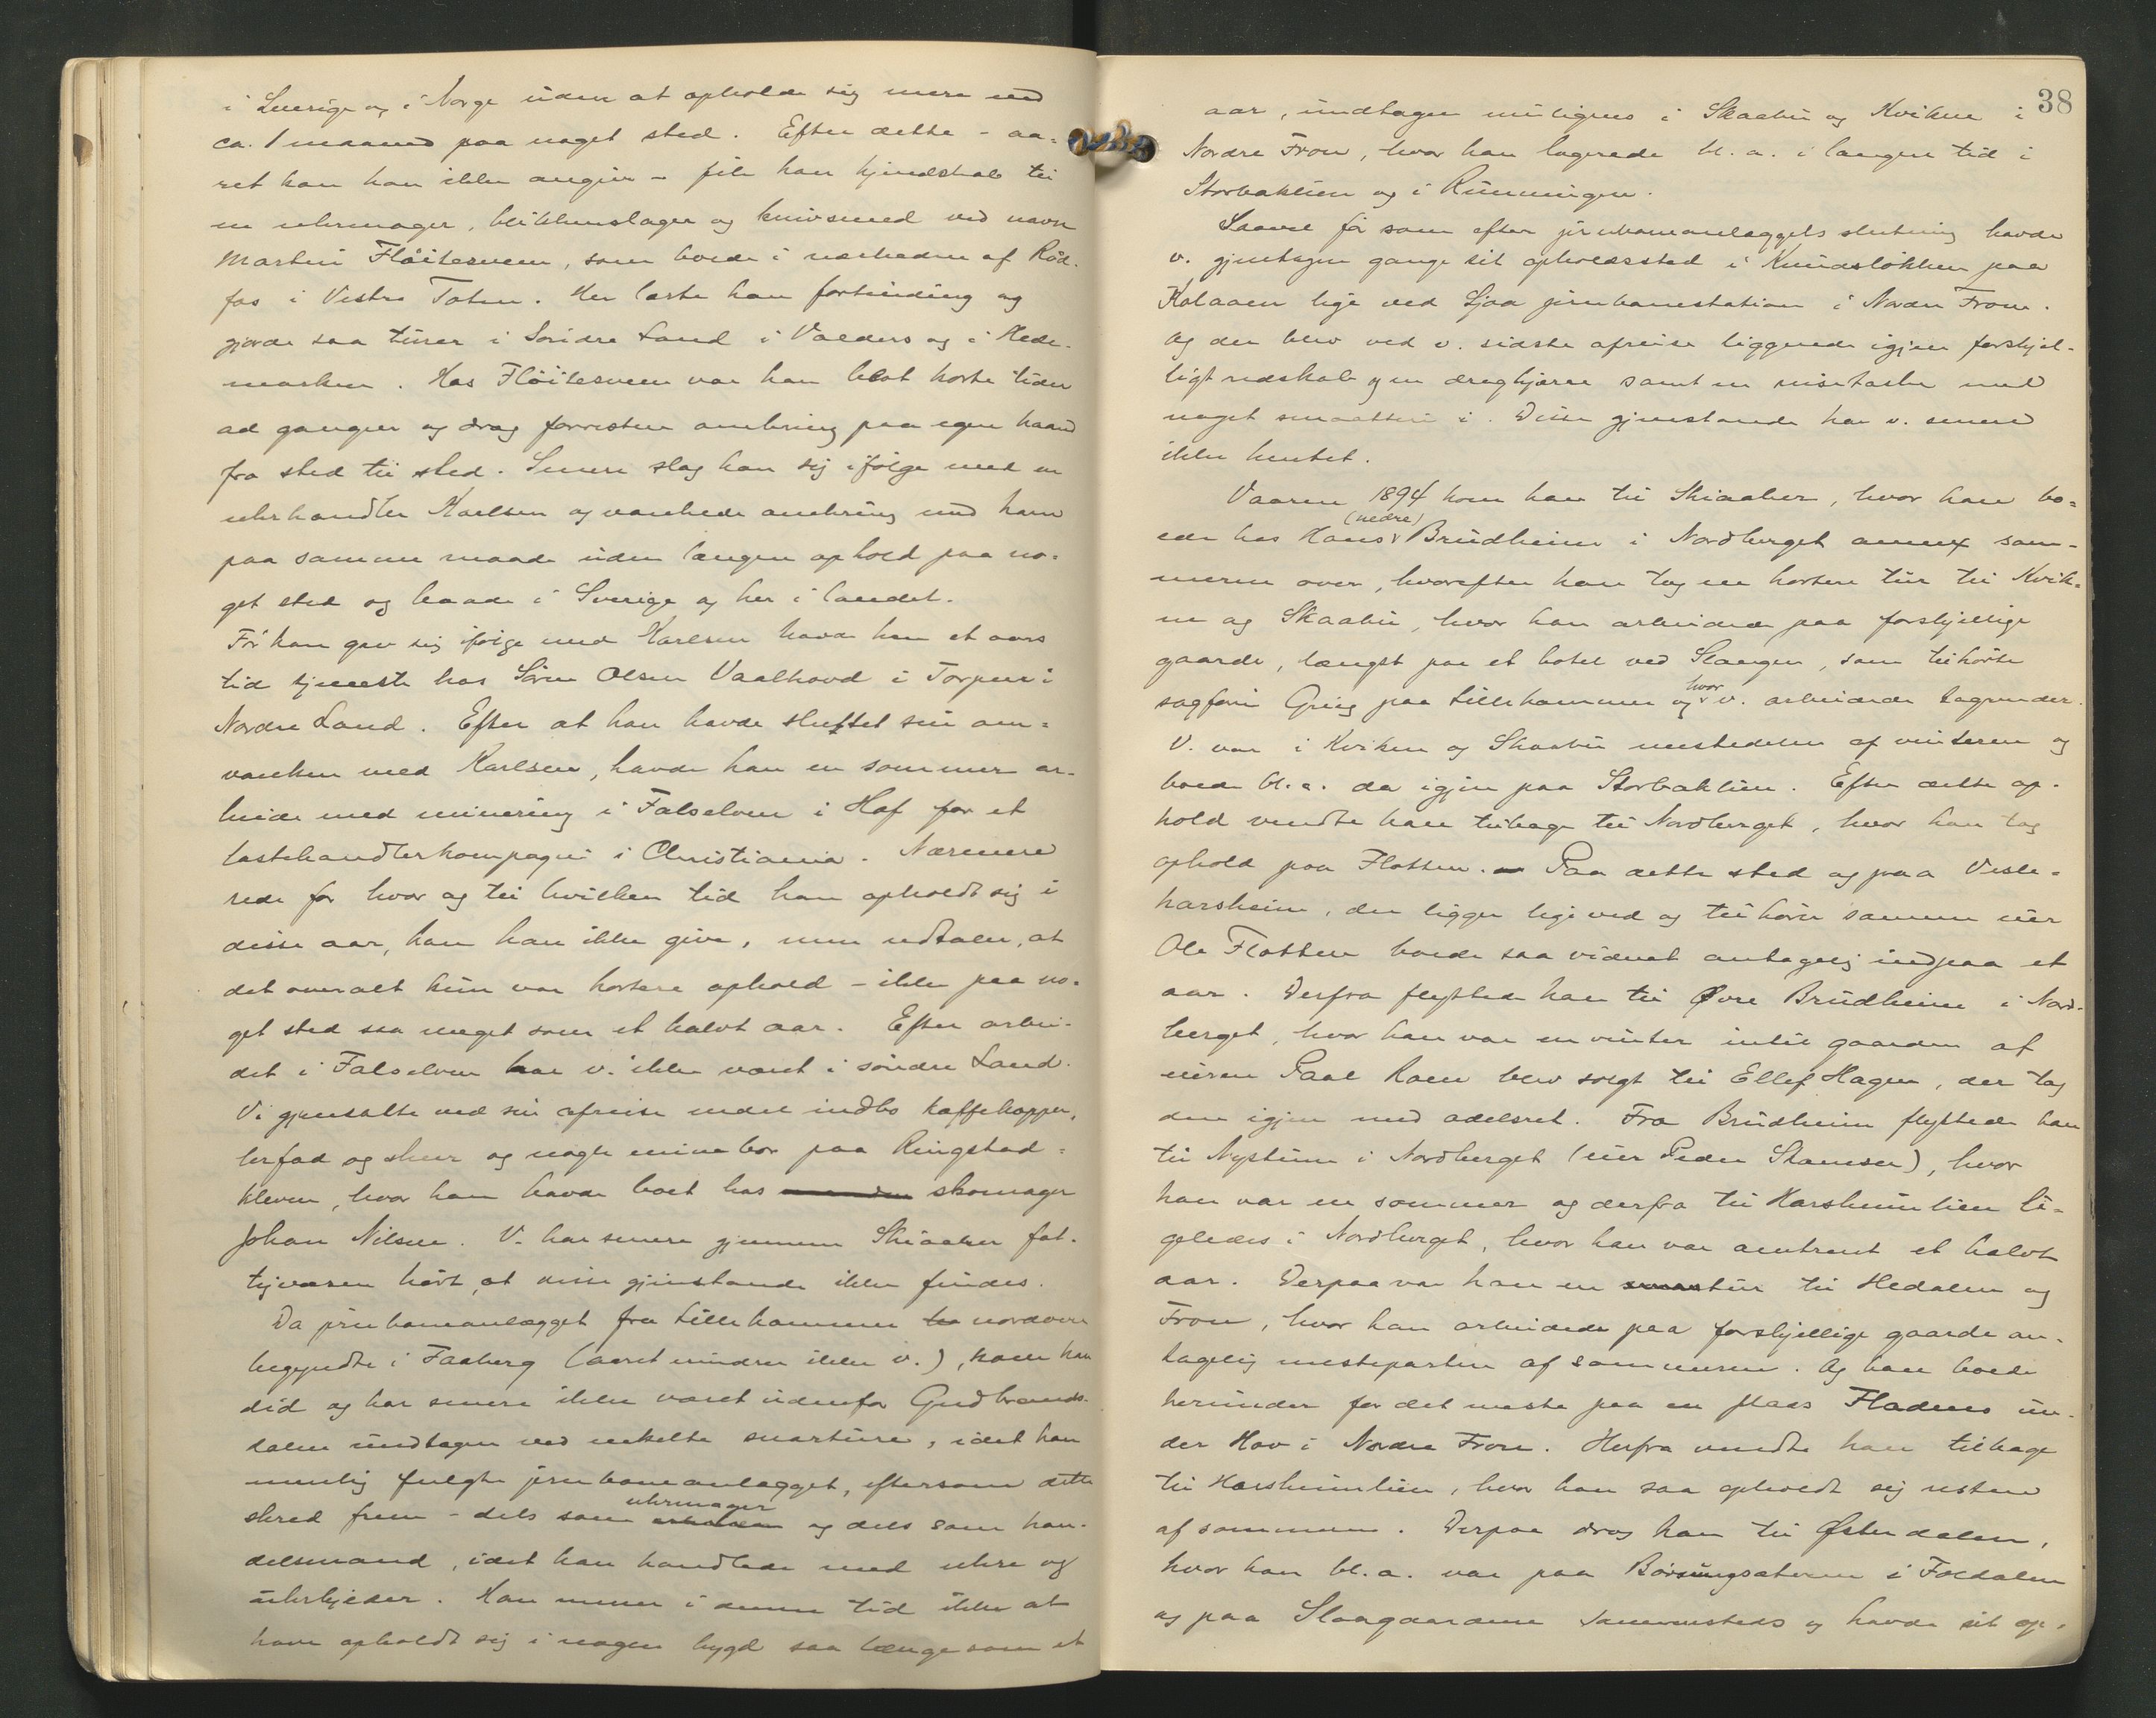 i Sverige og i Norge uden at opholde sig mere end
ca. 1 maaned paa noget sted. Efter dette - aa-
ret kan han ikke angive - fik han kjendskab til
en uhrmager, blikkenslager og knivsmed ved navn
Martin Flöitesveen, som boede i nærheden af Röd-
fos i Vestre Toten. Her lærte han fortinding og
gjorde saa turer i Söndre Land i Valders og i Hede-
marken. Hos Flöitesveen var han blot korte tider
ad gangen og drog forresten omkring paa egen haand
fra sted til sted. Senere slog han sig ifölge med en
uhrhandler Karlsen og vankede omkring med ham
paa samme maade uden længere ophold paa no-
get sted og baade i Sverige og her i landet.
För han gav sig ifölge med Karlsen havde han et aars
tid tjeneste hos Sören Olsen Vaalhovd i Torpen i
Nordre Land. Efter at han havde sluttet sin om-
vanken med Karlsen, havde han en sommer ar-
beide med minering i Falselven i Hof for et
lastehandlerkompagni i Christiania. Nærmere
rede for hvor og til hvilken tid han opholdt sig i
disse aar, kan han ikke give, men udtaler, at
det overalt kun var kortere ophold - ikke paa no-
get sted saa meget som et halvt aar. Efter arbei-
det i Falselven har v. ikke været i söndre Land.
V. gjensatte ved sin afreise endel indbo kaffekopper,
lerfad og skeer og nogle minebor paa Ringstad-
kleven, hvor han havde boet hos skomager
Johan Nilsen. V. har senere gjennem Skiaaker fat-
tigvæsen hört, at disse gjenstande ikke findes.
Da jernbaneanlægget fra Lillehammer nordover
begyndte i Faaberg (aaret mindes ikke v.), kom han
did og har senere ikke været udenfor Gudbrands-
dalen undtagen ved enkelte snarturer, idet han
nemlig fulgte jernbaneanlægget, eftersom dette
skred frem - dels som uhrmager og dels som han-
delsmand, idet han handlede med uhre og
uhrkjeder. Han mener i denne tid ikke at
have opholdt sig i nogen bygd saa længe som et
38
aar, undtagen muligens i Skaabu og Kvikne i
Nordre Fron, hvor han logerede bl. a. i længere tid i
Storbaklien og i Rumningen.
Saavel för som efter jernbaneanlæggets slutning havde
v. gjentagne gange sit opholdssted i Knudslökken paa
Kolaaen lige ved Sjoa jernbanestation i Nordre Fron.
Og der blev ved v. sidste afreise liggende igjen forskjel-
ligt redskab og en dragkjærre samt en reisetaske med
noget smaatteri i. Disse gjenstande har v. senere
ikke hentet.
Vaaren 1894 kom han til Skiaaker, hvor han bo-
ede hos Hans (nedre) Brudheim i Nordberget annex som-
meren over, hvorefter han tog en kortere tur til Kvik-
ne og Skaabu, hvor han arbeidede paa forskjellige
gaarde, længst paa et hotel ved Slangen, som tilhörte
sagförer Grieg paa Lillehammer og hvor v. arbeidede tagrender.
V. var i Kvikne og Skaabu mestedelen af vinteren og
boede bl. a. da igjen paa Storbaklien. Efter dette op-
hold vendte han tilbage til Nordberget, hvor han tog
ophold paa Flotten. Paa dette sted og paa Vesle-
harsheim, der ligger lige ved og tilhörer samme eier
Ole Flotten boede saa vidnet antagelig indpaa et
aar. Derfra flyttede han til Øvre Brudheim i Nord-
berget, hvor han var en vinter indtil gaarden af
eieren Paal Koen blev solgt til Ellef Hagen, der tog
den igjen med odelsret. Fra Brudheim flyttede han
til Nystuen i Nordberget (eier Peder Skamsar), hvor
han var en sommer og derfra til Harsheimlien li-
geledes i Nordberget, hvor han var omtrent et halvt
aar. Derpaa var han en tur til Hedalen og
Fron, hvor han arbeidede paa forskjellige gaarde an-
tagelig mesteparten af sommeren. Og han boede
herunder for det meste paa en plads Fladens un-
der Hov i Nordre Fron. Herfra vendte han tilbage
til Harsheimlien, hvor han saa opholdt sig resten
af sommeren. Derpaa drog han til Østerdalen,
hvor han bl. a. var paa Börsungsæteren i Foldalen
og paa Slaagaardene sammesteds og havde sit op-